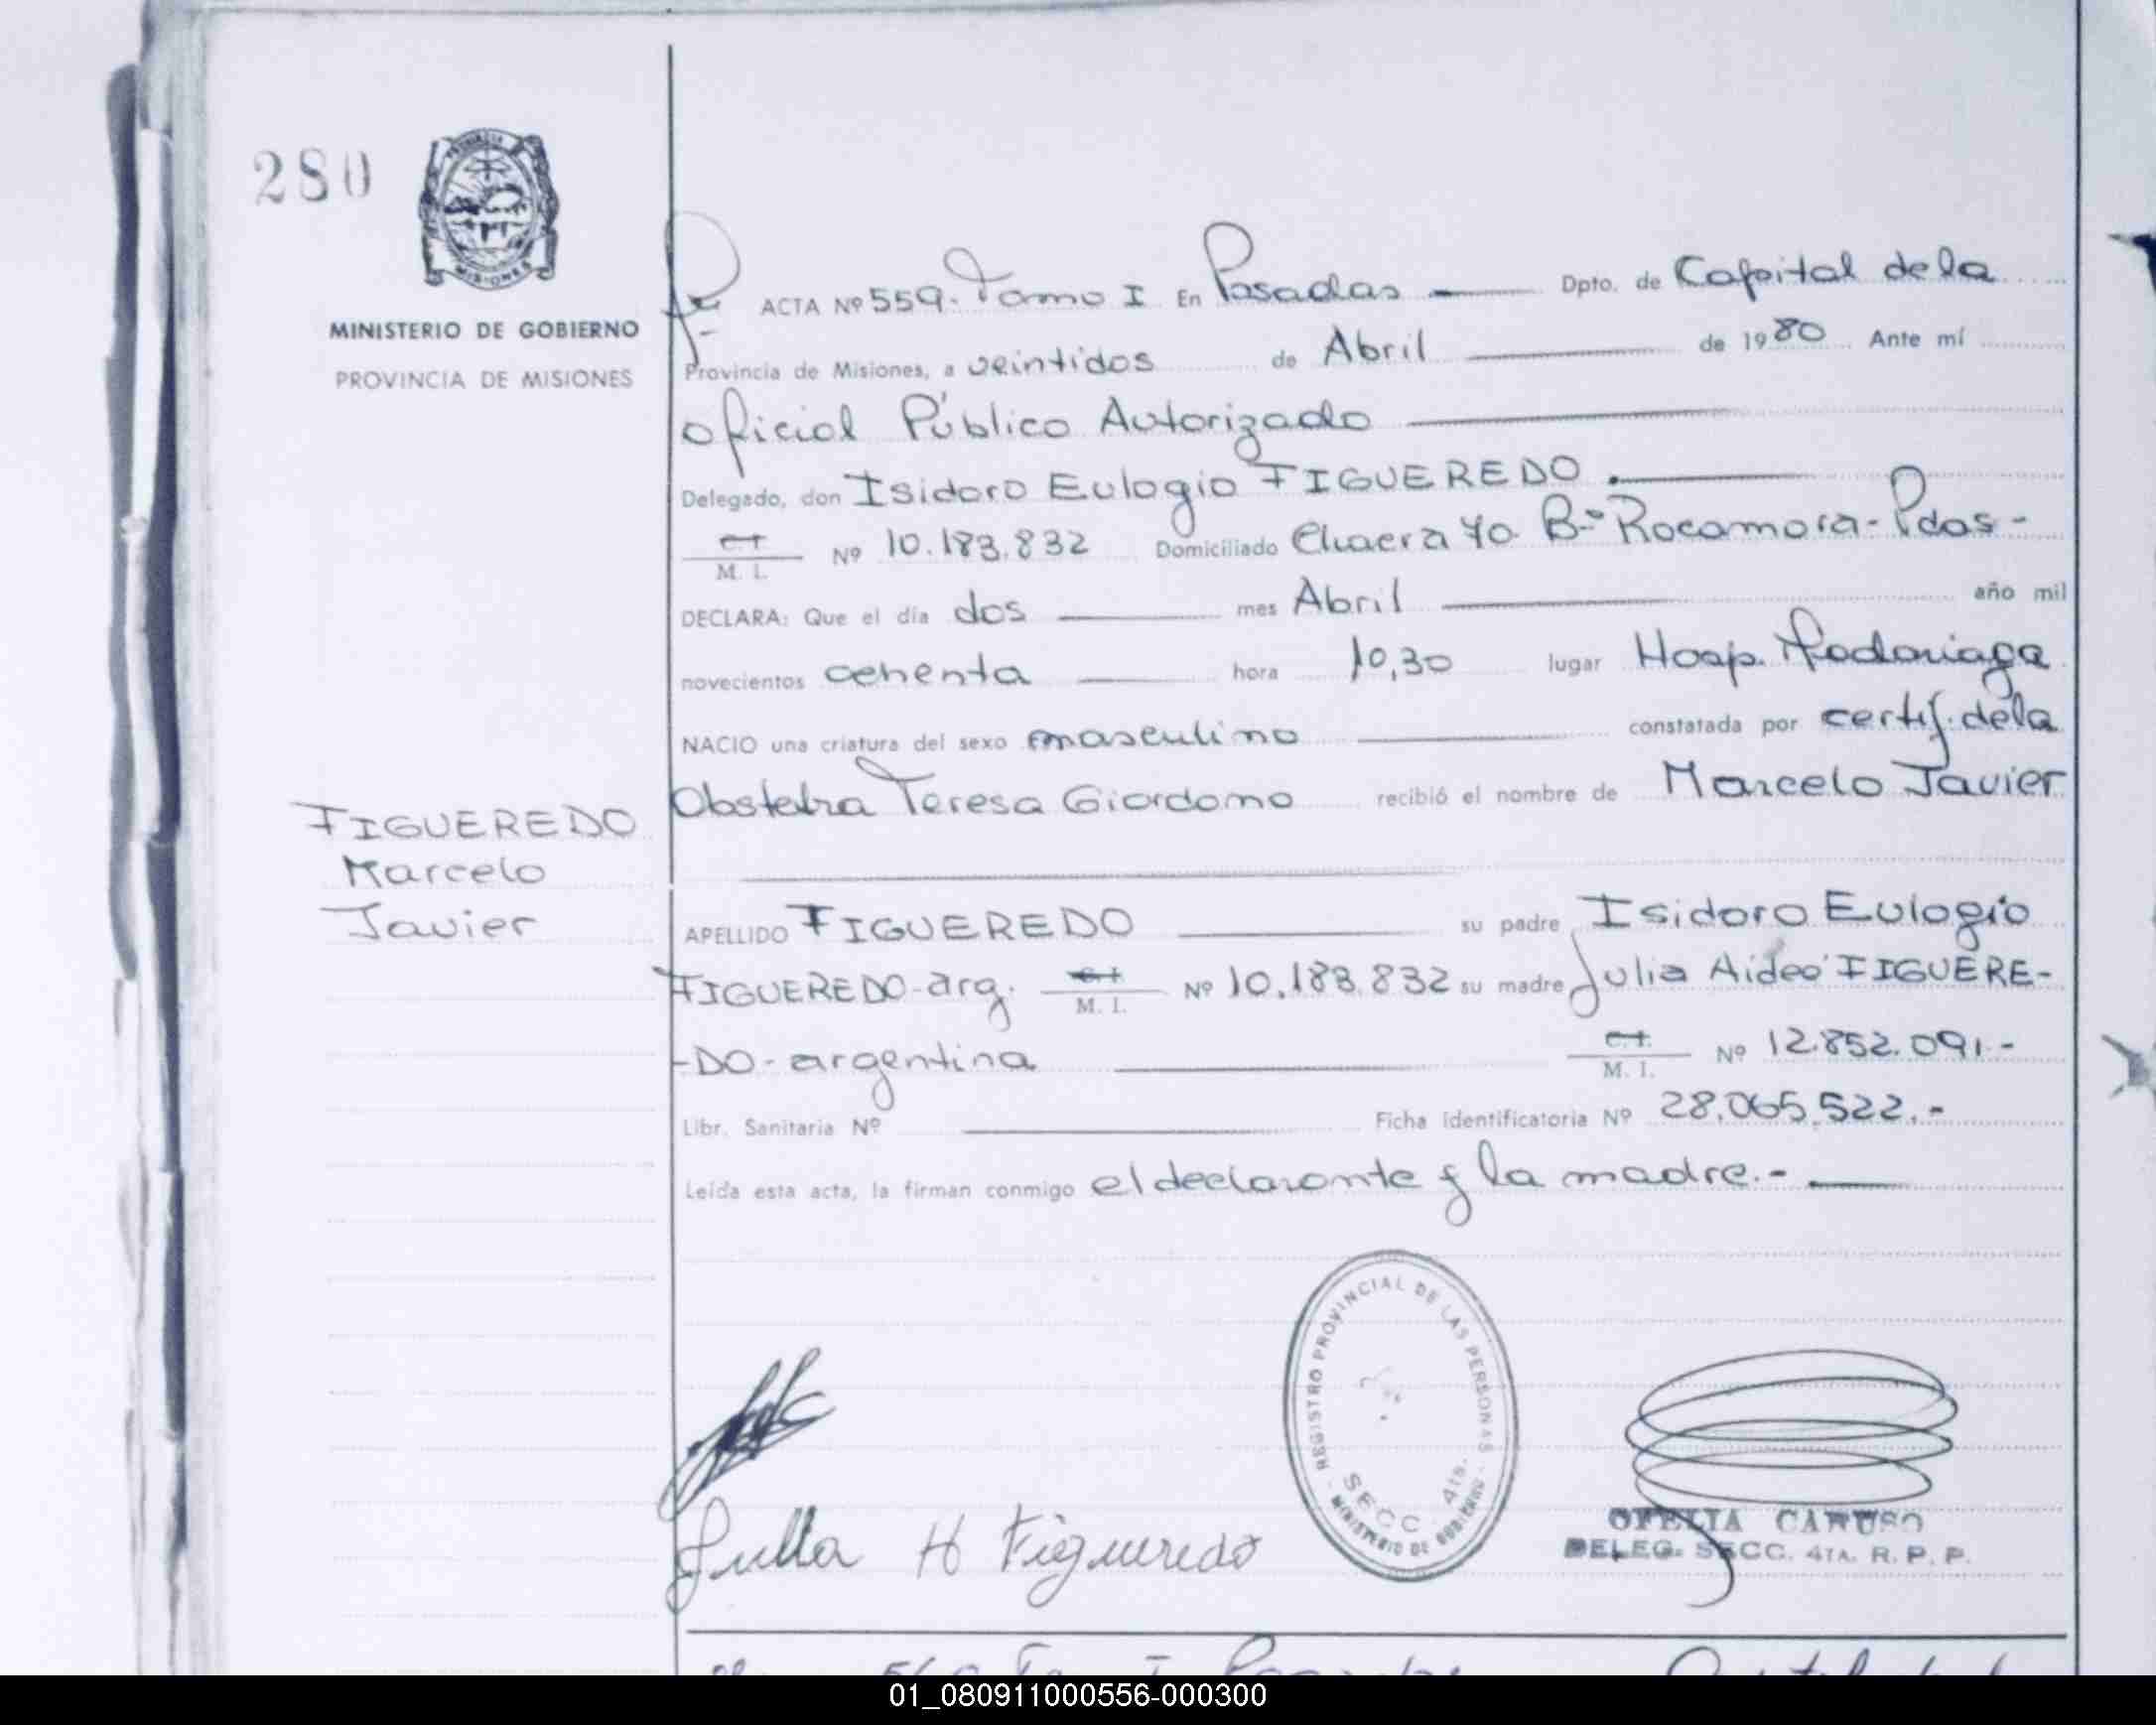 280
PROVINCIA
MISIONES
MINISTERIO DE GOBIERNO
PROVINCIA DE MISIONES
ACTA Nº 559. Tomo I En Posadas Dpto. de Capital de la
Provincia de Misiones, a veintidos de Abril de 1980 Ante mí
Oficial Público Autorizado
Delegado, don Isidoro Eulogio FIGUEREDO.
C.I. M. I. Nº 10.183.832 Domiciliado Chacra 40 Bº Rocamora - Pdas -
DECLARA: Que el día dos mes Abril año mil
novecientos ochenta hora 10,30 lugar Hosp. Madariaga
NACIO una criatura del sexo masculino constatada por certif. de la
Obstetra Teresa Giordomo recibió el nombre de Marcelo Javier
FIGUEREDO
Marcelo
Javier
APELLIDO FIGUEREDO su padre Isidoro Eulogio
FIGUEREDO - arg. C.I. M. I. Nº 10.183.832 su madre Julia Aideé FIGUERE-
-DO - argentina C.I. M. I. Nº 12.852.091.-
Libr. Sanitaria Nº Ficha identificatoria Nº 28.065.522.-
Leída esta acta, la firman conmigo el declarante y la madre.-
REGISTRO PROVINCIAL DE LAS PERSONAS
SECC. 4ta.
MINISTERIO DE GOBIERNO
Julia H Figueredo
OFELIA CARUSO
DELEG. SECC. 4TA. R. P. P.
01_080911000556-000300